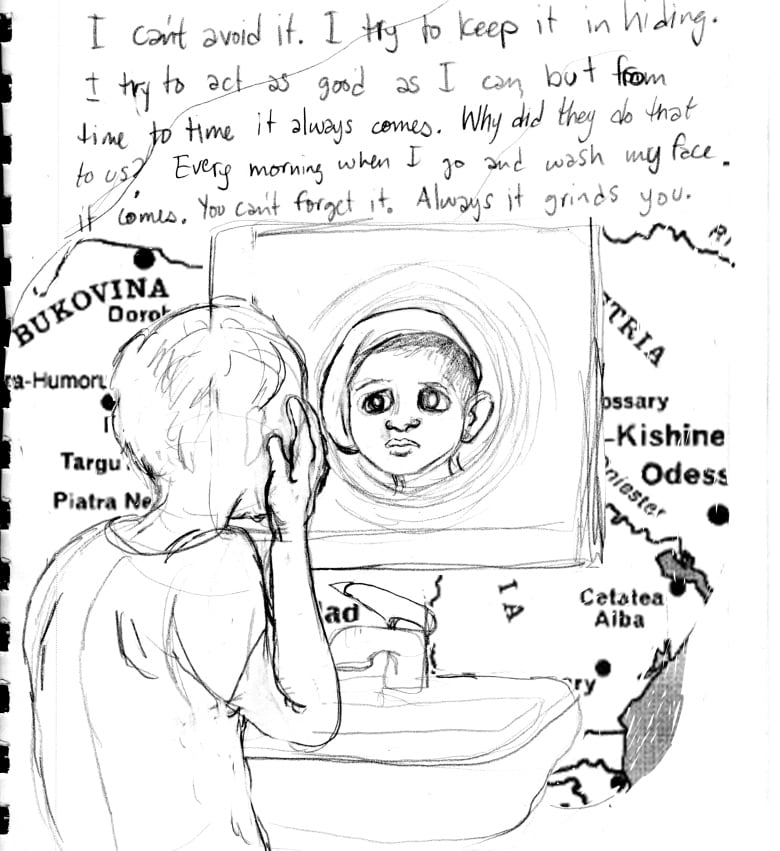 I can't avoid it. I try to keep it in hiding.
I try to act as good as I can, but from
time to time it always comes. Why did they do that
to us? Every morning when I go and wash my face.
it comes. You can't forget it. Always it grinds you.
BUKOVINA
Doroh
TRIA
ra-Humoru
ossary
-Kishine
Targu
Odess
Piatra Ne
Dniester
IA
Cetatea
Alba
ad
ry